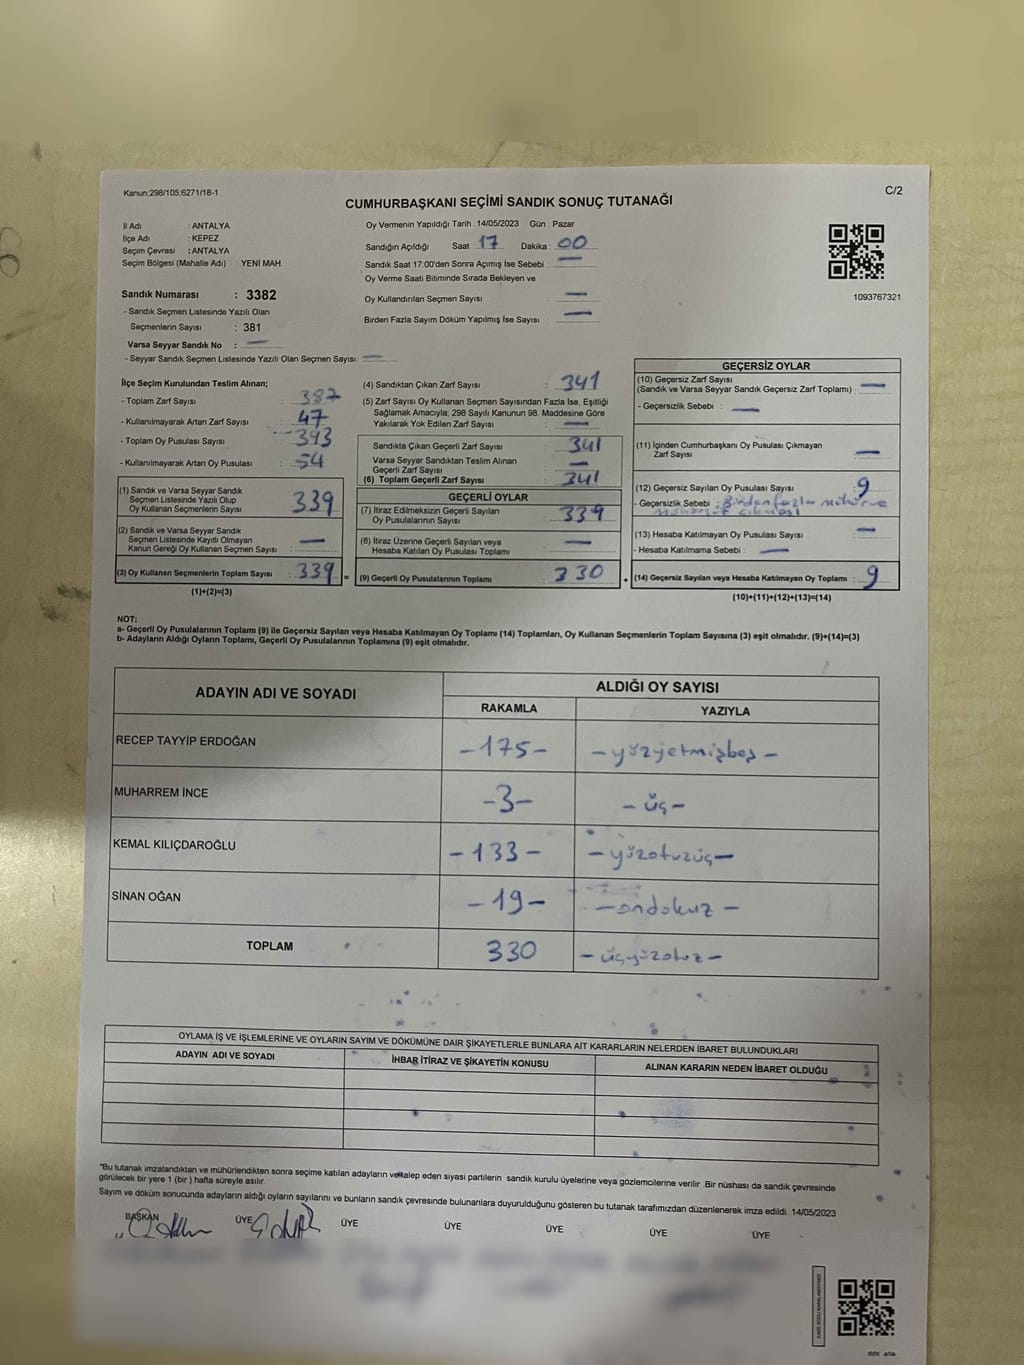 Kanun:298/105;6271/18-1
C/2
CUMHURBAŞKANI SEÇİMİ SANDIK SONUÇ TUTANAĞI
İl Adı : ANTALYA
İlçe Adı : KEPEZ
Seçim Çevresi : ANTALYA
Seçim Bölgesi (Mahalle Adı) : YENİ MAH.
Oy Vermenin Yapıldığı Tarih :14/05/2023 Gün : Pazar
Sandığın Açıldığı Saat : 17 Dakika : 00
Sandık Saat 17:00'den Sonra Açımış İse Sebebi : —
Oy Verme Saati Bitiminde Sırada Bekleyen ve
Oy Kullandırılan Seçmen Sayısı : —
Birden Fazla Sayım Döküm Yapılmış İse Sayısı : —
1093767321
Sandık Numarası : 3382
- Sandık Seçmen Listesinde Yazılı Olan
Seçmenlerin Sayısı : 381
Varsa Seyyar Sandık No : —
- Seyyar Sandık Seçmen Listesinde Yazılı Olan Seçmen Sayısı: —
İlçe Seçim Kurulundan Teslim Alınan;
- Toplam Zarf Sayısı : 387
- Kullanılmayarak Artan Zarf Sayısı : 47
- Toplam Oy Pusulası Sayısı : 393
- Kullanılmayarak Artan Oy Pusulası : 54
(1) Sandık ve Varsa Seyyar Sandık
Seçmen Listesinde Yazılı Olup
Oy Kullanan Seçmenlerin Sayısı : 339
(2) Sandık ve Varsa Seyyar Sandık
Seçmen Listesinde Kayıtlı Olmayan
Kanun Gereği Oy Kullanan Seçmen Sayısı : —
(3) Oy Kullanan Seçmenlerin Toplam Sayısı : 339 =
(1)+(2)=(3)
(4) Sandıktan Çıkan Zarf Sayısı : 341
(5) Zarf Sayısı Oy Kullanan Seçmen Sayısından Fazla İse, Eşitliği
Sağlamak Amacıyla; 298 Sayılı Kanunun 98. Maddesine Göre
Yakılarak Yok Edilen Zarf Sayısı : —
Sandıkta Çıkan Geçerli Zarf Sayısı : 341
Varsa Seyyar Sandıktan Teslim Alınan
Geçerli Zarf Sayısı : —
(6) Toplam Geçerli Zarf Sayısı : 341
GEÇERLİ OYLAR
(7) İtiraz Edilmeksizin Geçerli Sayılan
Oy Pusulalarının Sayısı : 339
(8) İtiraz Üzerine Geçerli Sayılan veya
Hesaba Katılan Oy Pusulası Toplamı : —
(9) Geçerli Oy Pusulalarının Toplamı : 330 +
GEÇERSİZ OYLAR
(10) Geçersiz Zarf Sayısı
(Sandık ve Varsa Seyyar Sandık Geçersiz Zarf Toplamı) : —
- Geçersizlik Sebebi : —
(11) İçinden Cumhurbaşkanı Oy Pusulası Çıkmayan
Zarf Sayısı : —
(12) Geçersiz Sayılan Oy Pusulası Sayısı : 9
- Geçersizlik Sebebi : Birden fazla
(13) Hesaba Katılmayan Oy Pusulası Sayısı : —
- Hesaba Katılmama Sebebi : —
(14) Geçersiz Sayılan veya Hesaba Katılmayan Oy Toplamı : 9
(10)+(11)+(12)+(13)=(14)
NOT:
a- Geçerli Oy Pusulalarının Toplamı (9) ile Geçersiz Sayılan veya Hesaba Katılmayan Oy Toplamı (14) Toplamları, Oy Kullanan Seçmenlerin Toplam Sayısına (3) eşit olmalıdır. (9)+(14)=(3)
b- Adayların Aldığı Oyların Toplamı, Geçerli Oy Pusulalarının Toplamına (9) eşit olmalıdır.
ADAYIN ADI VE SOYADI
ALDIĞI OY SAYISI
RAKAMLA YAZIYLA
RECEP TAYYİP ERDOĞAN -175- -yüzyetmişbeş-
MUHARREM İNCE -3- -üç-
KEMAL KILIÇDAROĞLU -133- -yüzotuzüç-
SİNAN OĞAN -19- -ondokuz-
TOPLAM 330 -üçyüzotuz-
OYLAMA İŞ VE İŞLEMLERİNE VE OYLARIN SAYIM VE DÖKÜMÜNE DAİR ŞİKAYETLERLE BUNLARA AİT KARARLARIN NELERDEN İBARET BULUNDUKLARI
ADAYIN ADI VE SOYADI İHBAR İTİRAZ VE ŞİKAYETİN KONUSU ALINAN KARARIN NEDEN İBARET OLDUĞU
*Bu tutanak imzalandıktan ve mühürlendikten sonra seçime katılan adayların ve talep eden siyasi partilerin sandık kurulu üyelerine veya gözlemcilerine verilir .Bir nüshası da sandık çevresinde
görülecek bir yere 1 (bir ) hafta süreyle asılır.
Sayım ve döküm sonucunda adayların aldığı oyların sayılarını ve bunların sandık çevresinde bulunanlara duyurulduğunu gösteren bu tutanak tarafımızdan düzenlenerek imza edildi. 14/05/2023
BAŞKAN ÜYE ÜYE ÜYE ÜYE ÜYE ÜYE